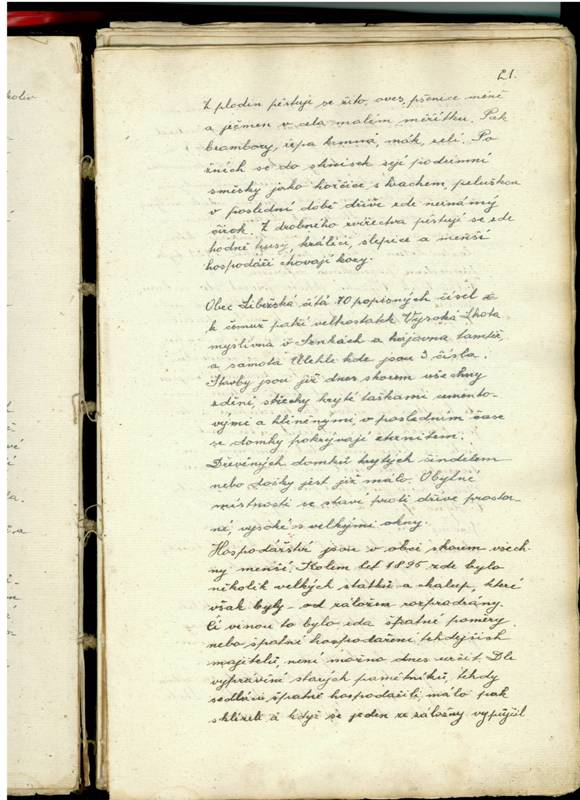 21.
Z plodin pěstuje se žito, oves, pšenice méně
a ječmen v cela malém měřítku. Pak
brambory, řepa krmná, mák, zelí. Po
žních se do strnisek sejí podzimní
směsky jako hořčice, s hrachem, peluškou
v poslední době dříve zde neznámý
čirok. Z drobného zvířectva pěstují se zde
hodně husy, králíci, slepice a menší
hospodáři chovají kozy.
Obec Libežská čítá 70 popisných čísel
k čemuž patří velkostatek Vysoká Lhota
myslivna v Senkách a hájovna tamtéž,
a samota Ulehle kde jsou 3 čísla.
Stavby jsou již dnes skorem všechny
zděné, střechy kryté taškami cemento-
vými a hliněnými, v posledním čase
se domky pokrývají eternitem.
Dřevěných domků krytých šindelem
nebo došky jest již málo. Obytné
místnosti se staví proti dříve prostor-
né, vysoké s velkými okny.
Hospodářství jsou v obci skorem všech-
ny menší. Kolem let 1895 zde bylo
několik velkých statků a chalup, které
však byly od záložen rozprodány.
Čí vinou to bylo zda špatné poměry
nebo špatné hospodaření tehdejších
majitelů, není možno dnes určit. Dle
vypravění starých pamětníků, tehdy
sedláci špatně hospodařili, málo pak
sklízeli a když se jeden ze záložny vypůjčil